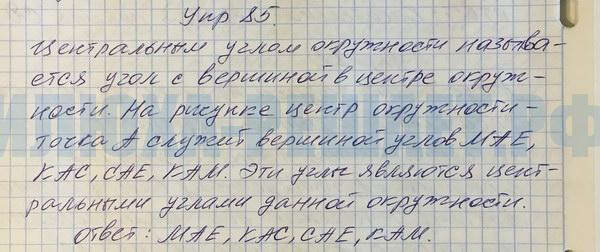 Упр 85.
Центральным углом окружности называ-
ется угол с вершиной в центре окруж-
ности. На рисунке центр окружности -
точка А служит вершиной углов МАЕ,
КАС, САЕ, КАМ. Эти углы являются цент-
ральными углами данной окружности.
Ответ: МАЕ, КАС, САЕ, КАМ.